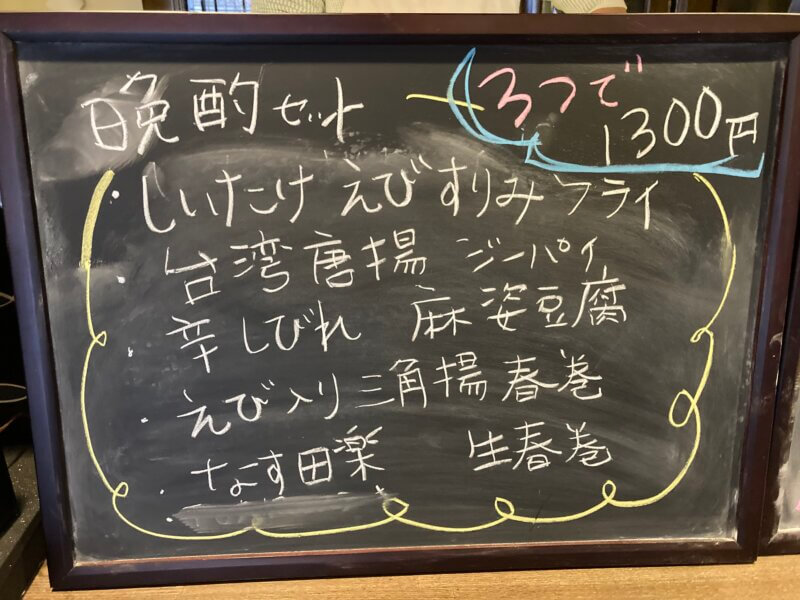 晩酌セット 3つで
1300円
・しいたけ えびすりみフライ
・台湾唐揚 ジーパイ
・辛しびれ 麻婆豆腐
・えび入り三角揚春巻
・なす田楽 生春巻